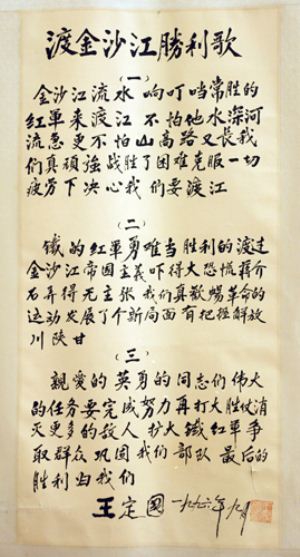 渡金沙江勝利歌
(一)
金沙江流水响叮当常胜的
红軍来渡江不怕他水深河
流急更不怕山高路又长我
们真頑強战胜了困难克服一切
疲劳下决心我们要渡江
(二)
鉄的红軍勇难当胜利的渡过
金沙江帝国主義吓得大恐慌蒋介
石弄得无主张我们真歡暢革命的
运动发展了个新局面有把握解放
川陕甘
(三)
親爱的英勇的同志们伟大
的任务要完成努力再打大胜仗消
灭更多的敌人扩大鉄红軍争
取群众巩固我们部队最后的
胜利归我们
王定國一九九六年九月